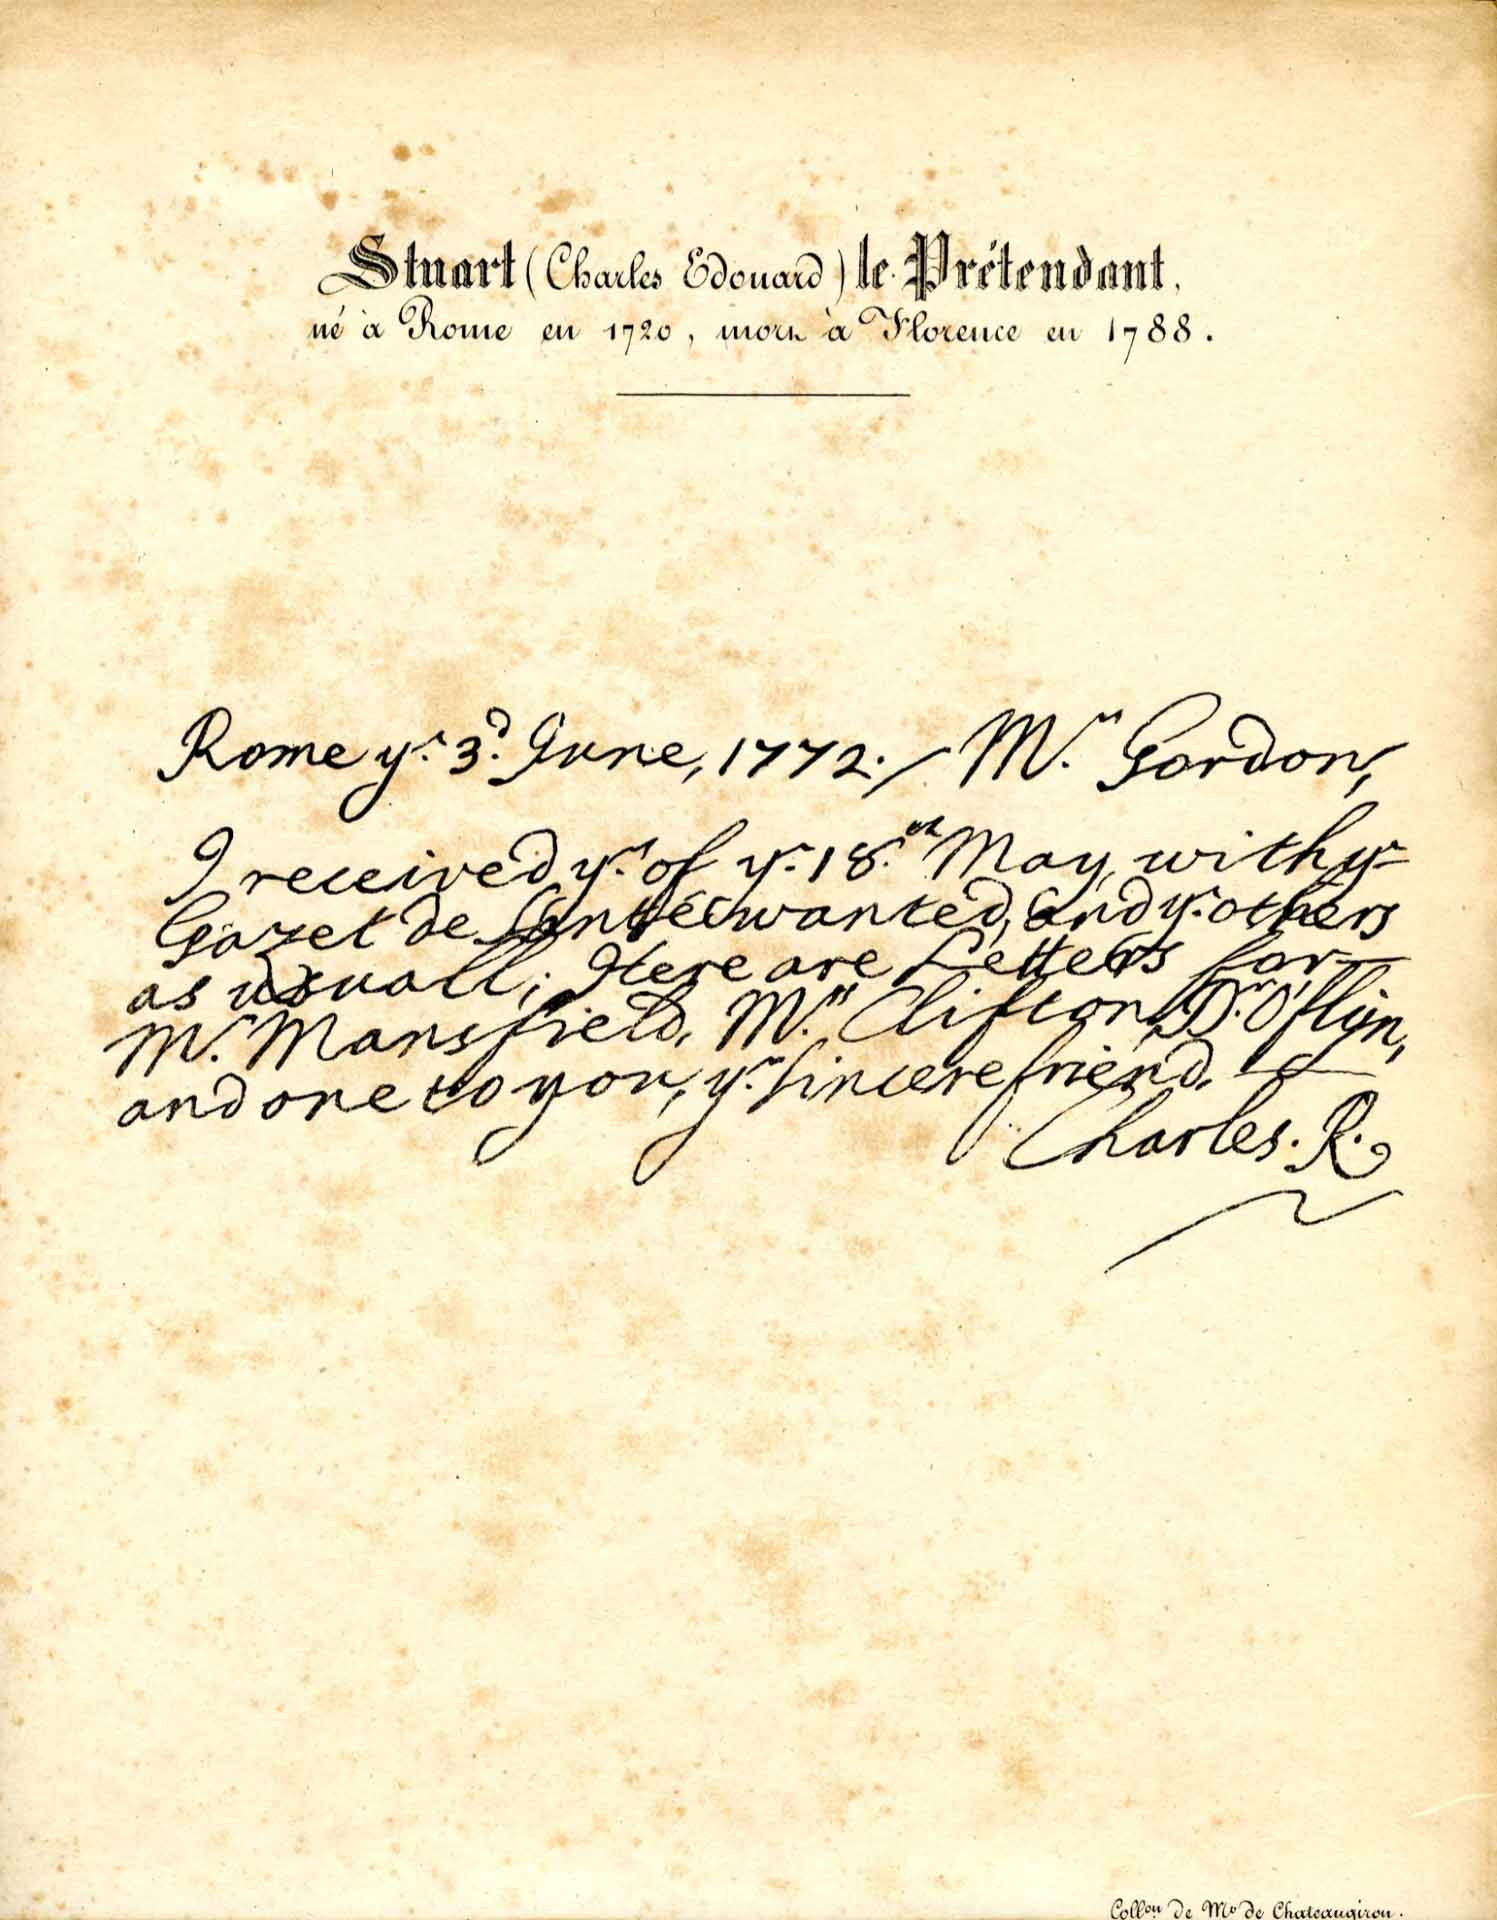 Stuart (Charles Edouard) le Prétendant,
né à Rome en 1720, mort à Florence en 1788.
Rome yᵉ 3ᵈ June, 1772. / Mʳ Gordon,
I received yʳˢ of yᵉ 18.ᵗʰ May, with yᵉ
Gazet de wanted, and yᵉ others
as usuall; Here are Letters for
Mʳ Mansfield, Mʳˢ Clifton, Dʳ O'flyn,
and one to you, yʳ sincere friend.
Charles. R.
Collᵒⁿ de Mʳ de Chateaugiron.